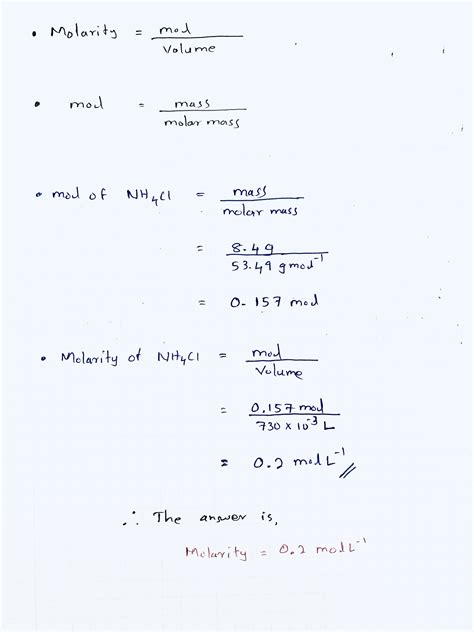 • Molarity = mol / Volume
• mol = mass / molar mass
• mol of NH4Cl = mass / molar mass
= 8.4g / 53.49 gmol⁻¹
= 0.157 mol
• Molarity of NH4Cl = mol / Volume
= 0.157 mol / 730 × 10⁻³ L
= 0.2 mol L⁻¹ //
∴ The answer is,
Molarity = 0.2 mol L⁻¹